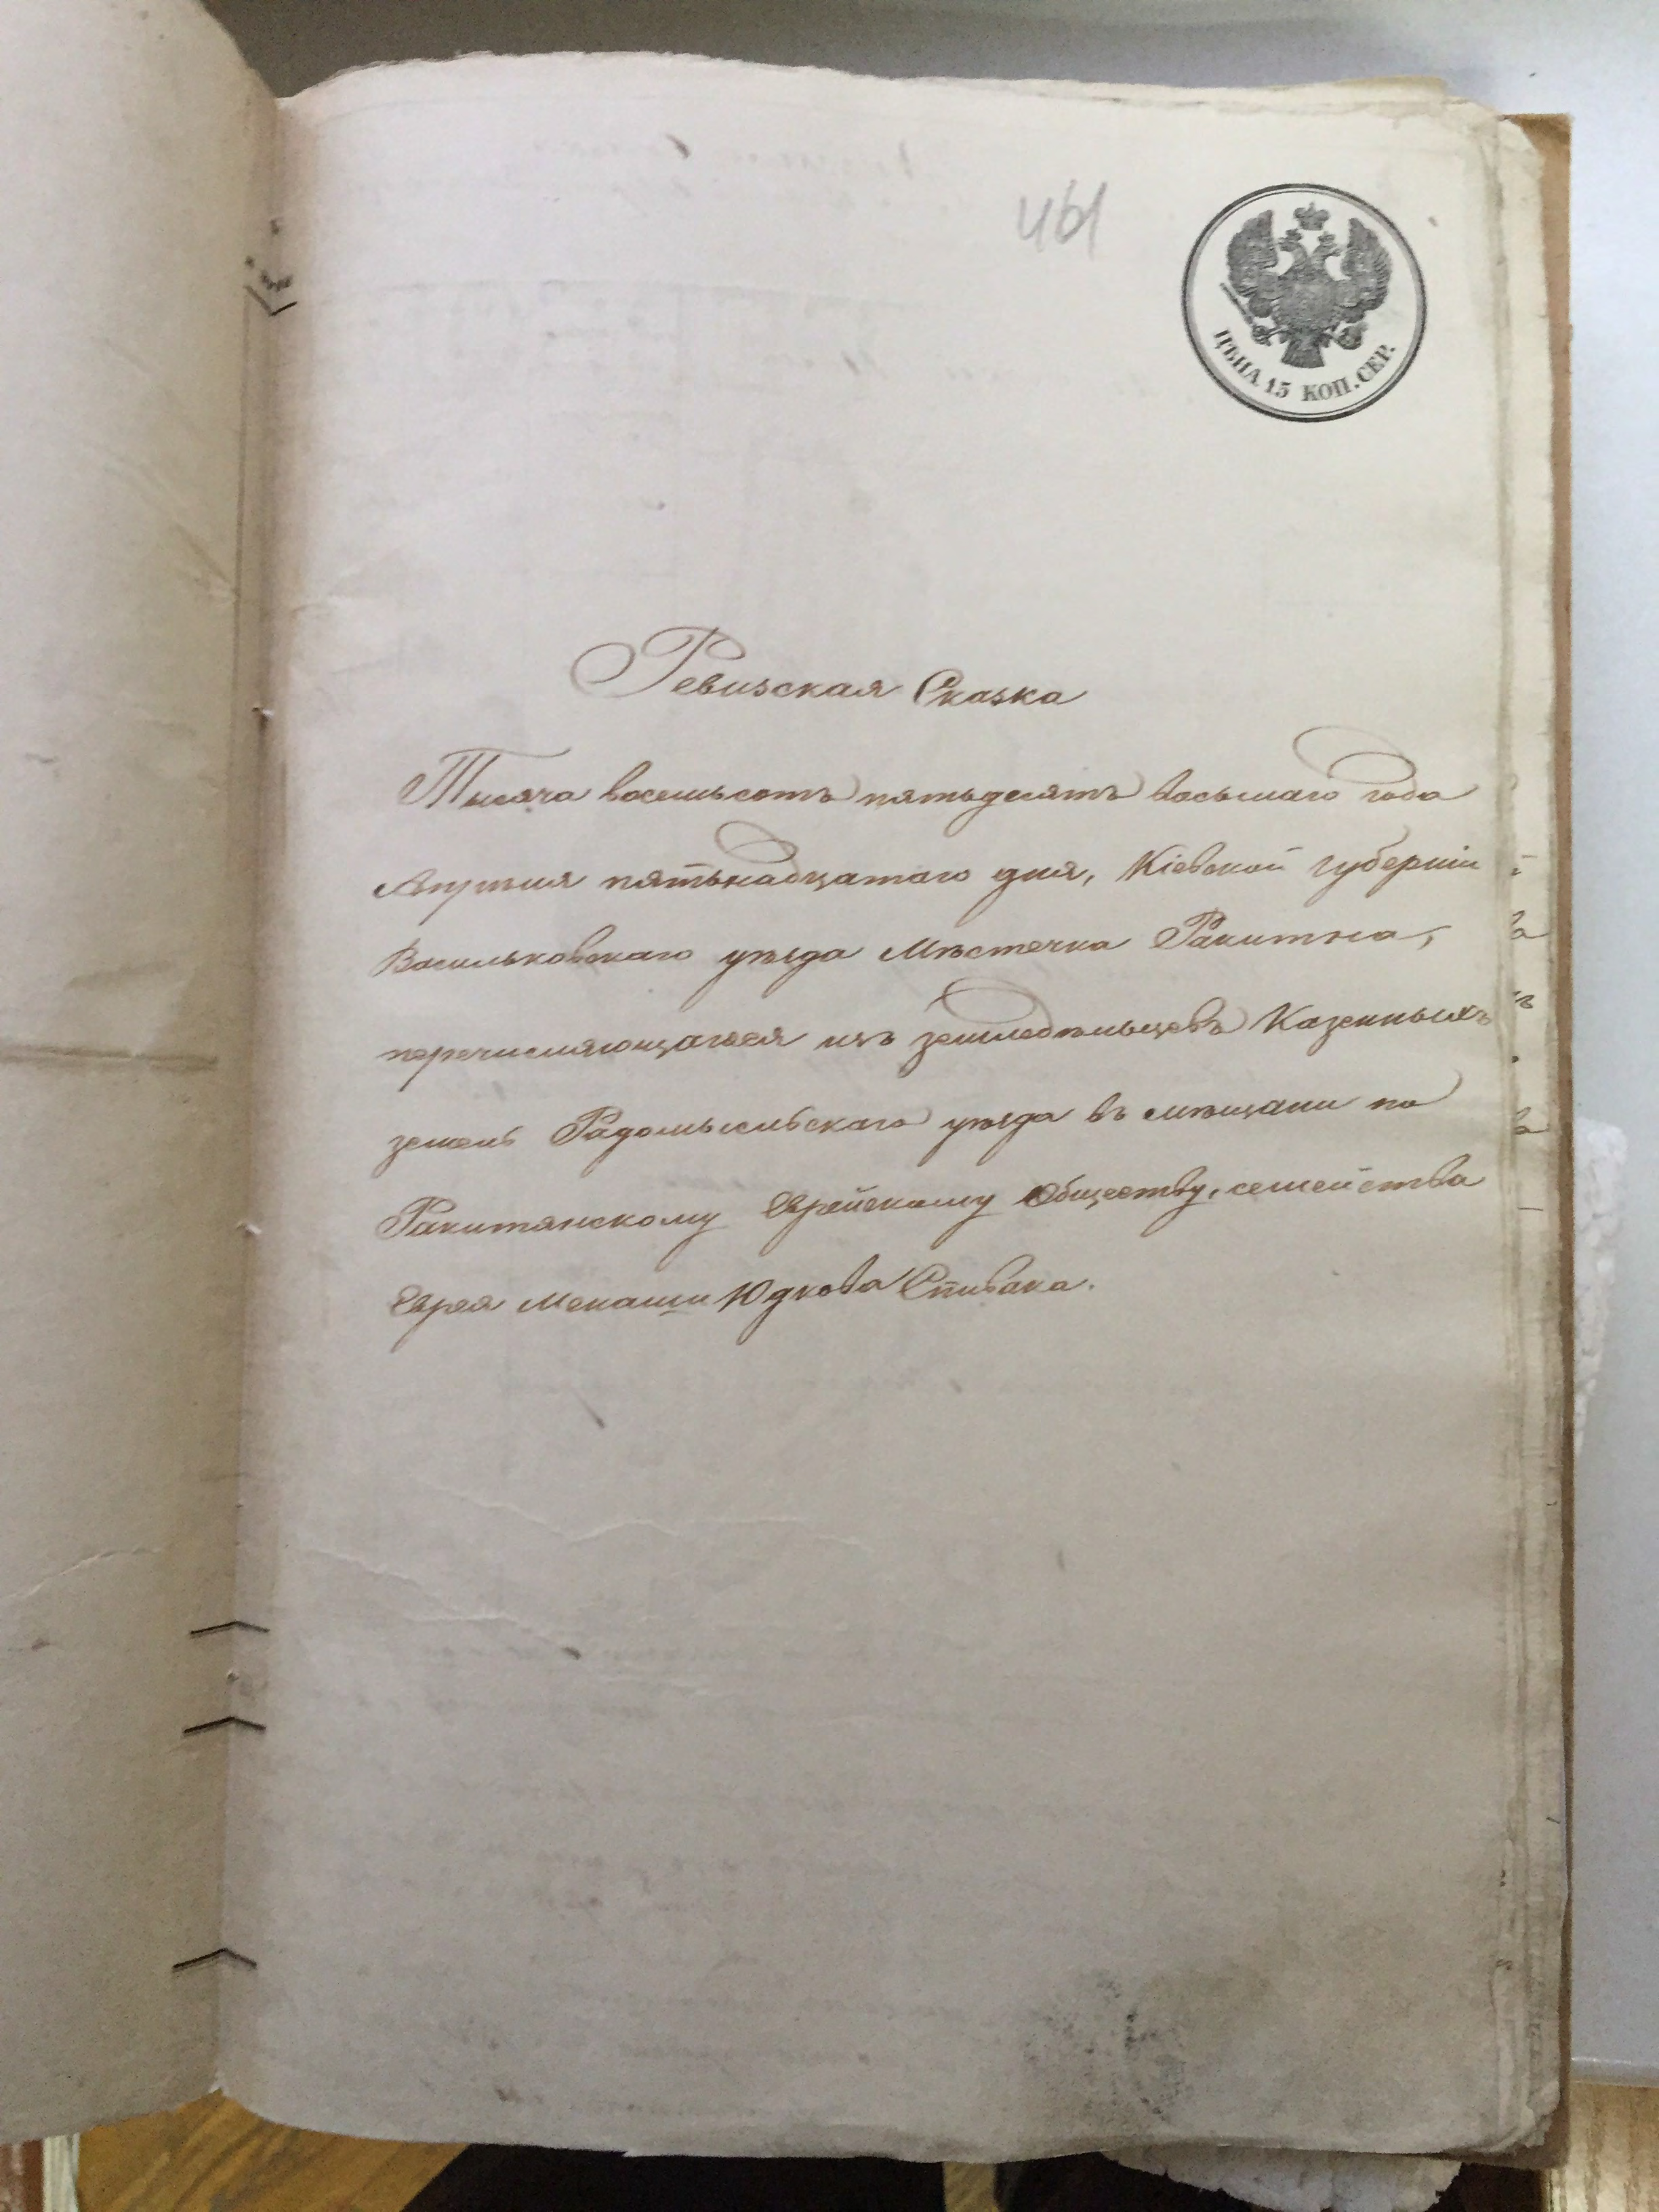 461
ЦѢНА 15 КОП. СЕР.
Ревизская Сказка
Тысяча восемьсотъ пятьдесятъ восьмаго года
Апреля пятьнадцатаго дня, Кіевской губерніи
Васильковскаго уѣзда Мѣстечка Ракитна,
перечисляющагося изъ земледѣльцевъ Казенныхъ
земель Радомысльскаго уѣзда въ мѣщани по
Ракитянскому Еврейскому Обществу, семейства
Еврея Менаши Юдкова Спивака.